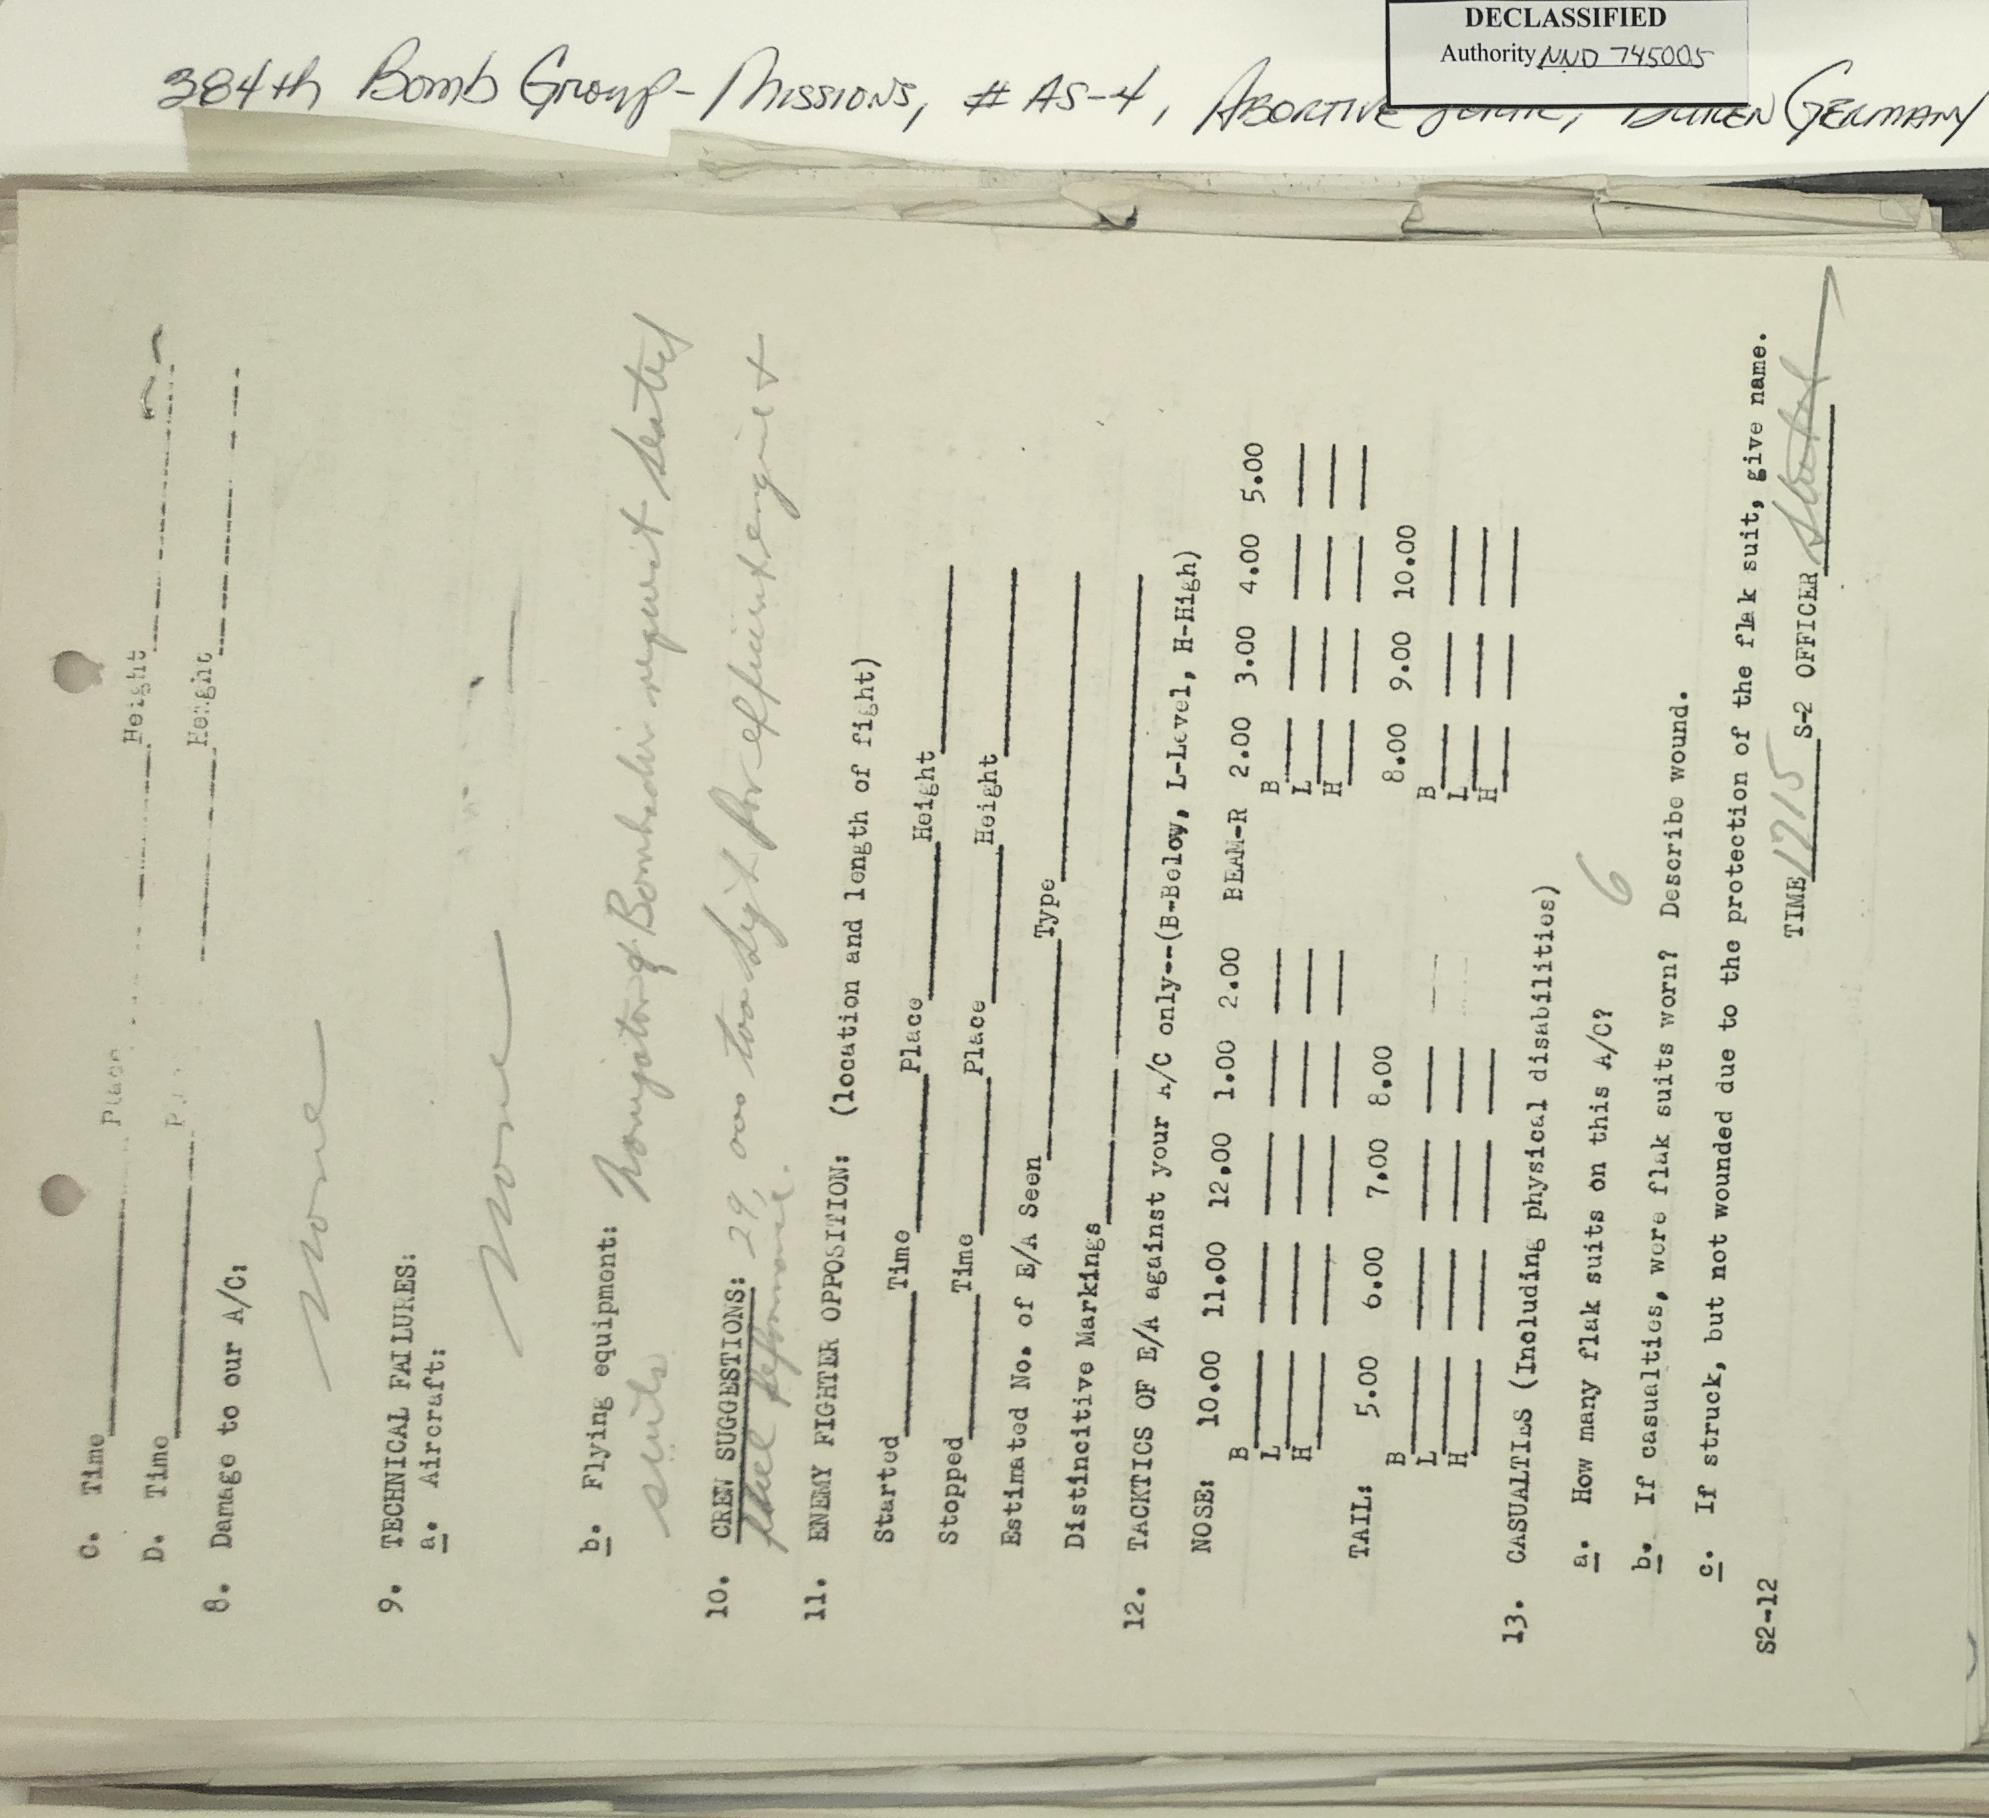 DECLASSIFIED
Authority NND 745005
384th Bomb Group - Missions, # AS-4, ABORTIVE DUREN GERMANY
C. Time Place Height
D. Time Height
8. Damage to our A/C:
None
9. TECHNICAL FAILURES:
a. Aircraft:
None
b. Flying equipmont: Navigator & Bombadier request heated
suits
10. CREW SUGGESTIONS: 29,000 too high for efficient engine &
11. ENEMY FIGHTER OPPOSITION: (location and length of fight)
Started Time Place Height
Stopped Time Place Height
Estimated No. of E/A Seen Type
Distincitive Markings
12. TACKTICS OF E/A against your A/C only--(B-Below, L-Level, H-High)
NOSE: 10.00 11.00 12.00 1.00 2.00 BEAM-R 2.00 3.00 4.00 5.00
B B
L L
H H
TAIL: 5.00 6.00 7.00 8.00 8.00 9.00 10.00
B B
L L
H H
13. CASUALTIES (Including physical disabilities)
a. How many flak suits on this A/C? 6
b. If casualties, were flak suits worn? Describe wound.
c. If struck, but not wounded due to the protection of the flak suit, give name.
S2-12 TIME 1715 S-2 OFFICER